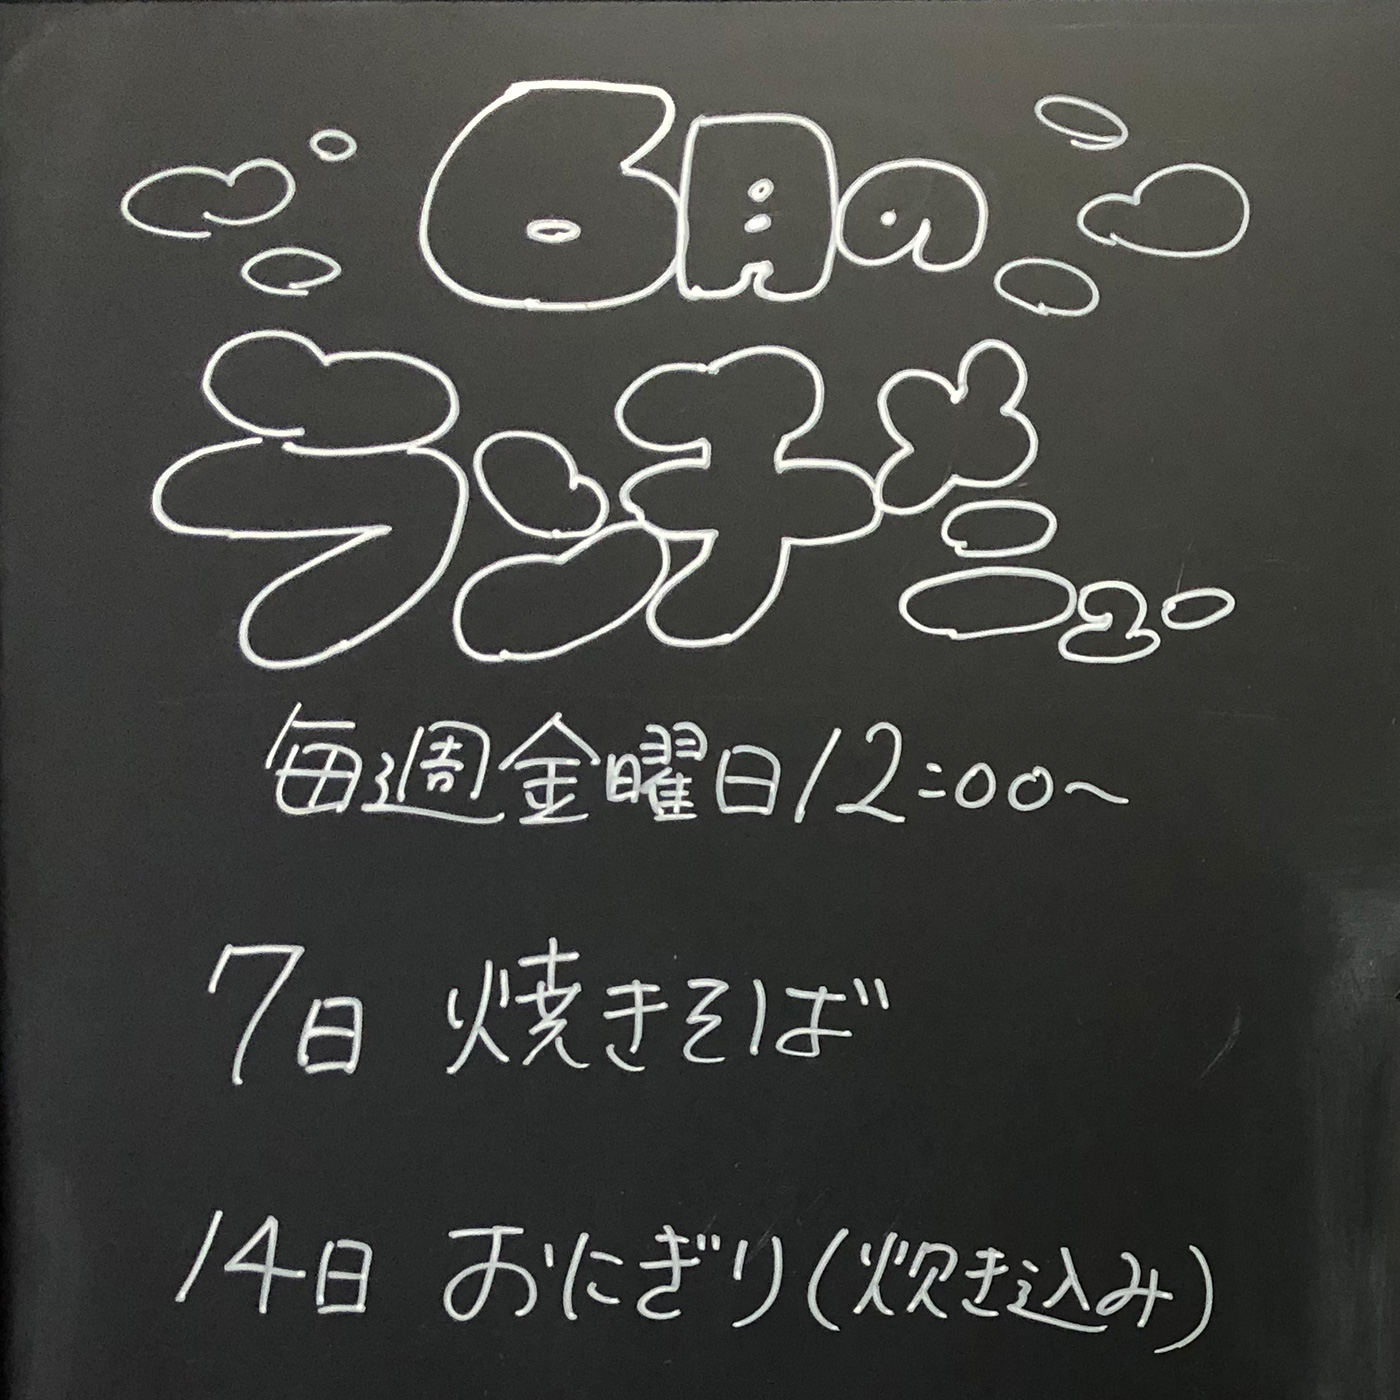 6月の
ランチメニュー
毎週金曜日12:00～
7日 焼きそば
14日 おにぎり(炊き込み)